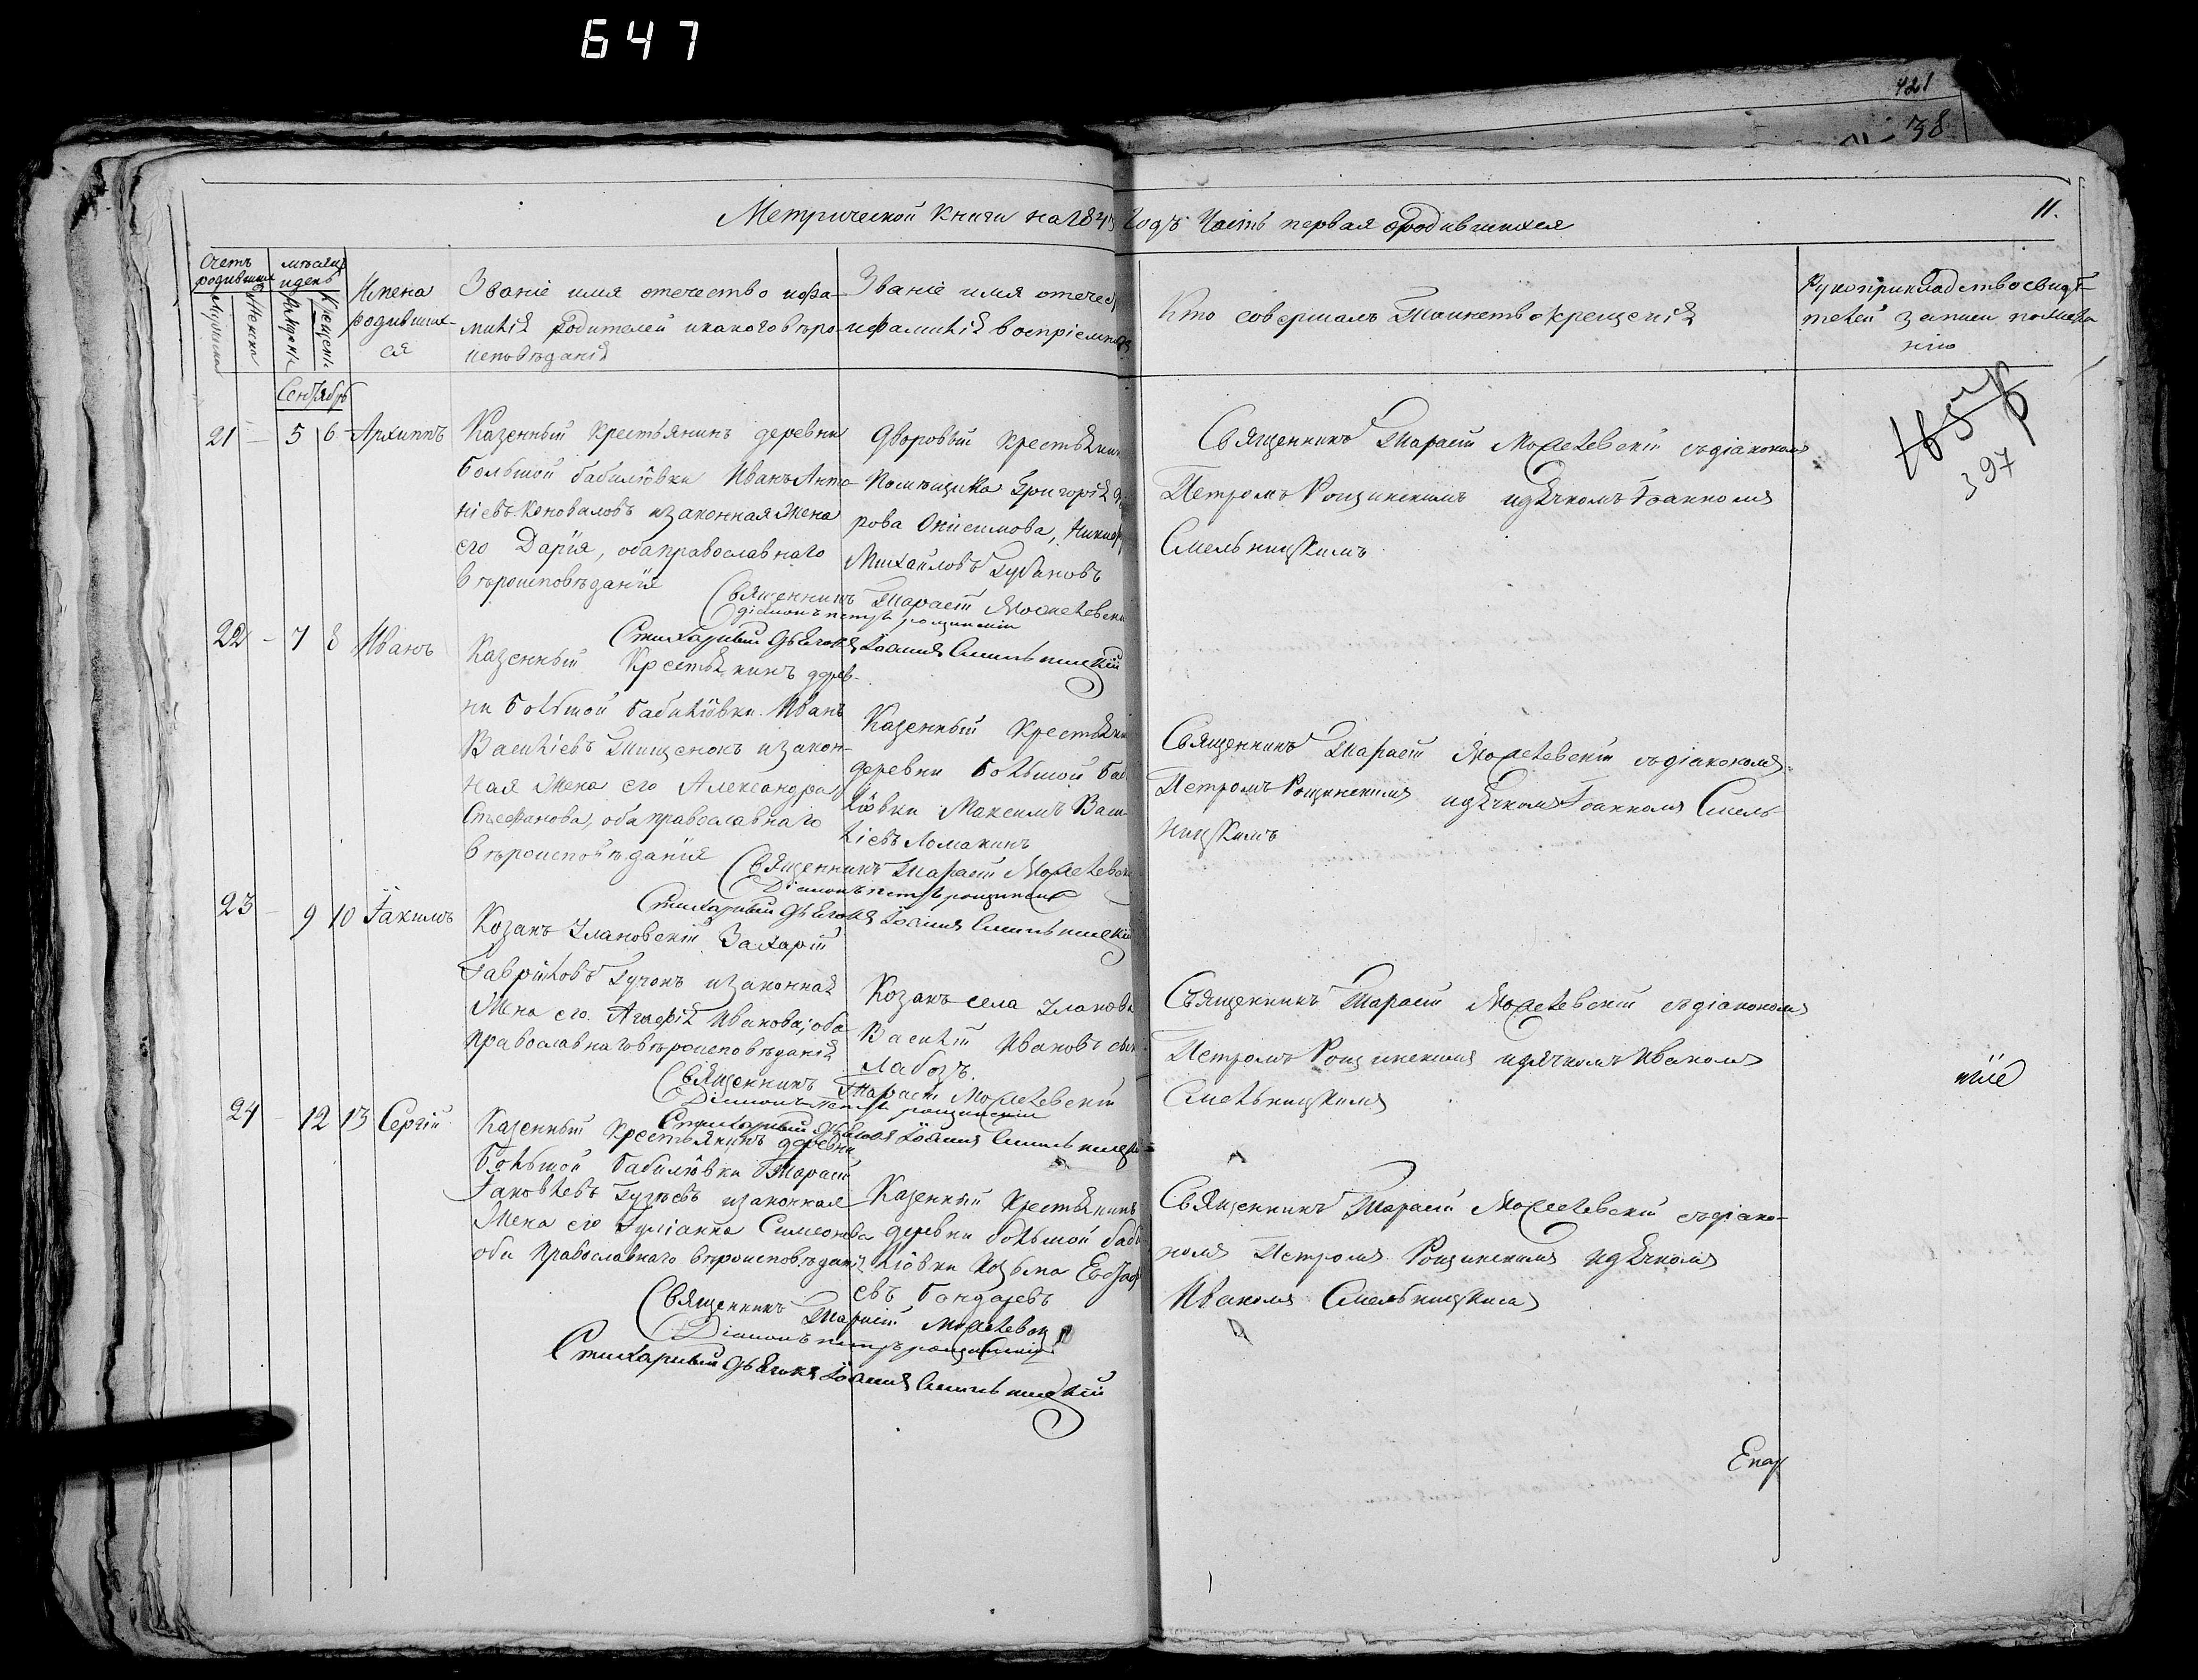 647
421
38
11.
Метрической книги на 1843 годъ Часть первая о родившихся
Счетъ родившихся
Мужеска
Женска
мѣсяцъ и день
Рожденія
Крещенія
Имена родившихся
Званіе имя отечество и фа-
милія родителей и какого вѣро-
исповѣданія
Званіе имя отечес
и фамилія воспріемник
Кто совершалъ Таинство крещенія
Рукоприкладство свидѣ-
телей записи по жела
нію
Сентябрь
21 — 5 6 Архиппъ
Казенный крестьянинъ деревни
Большой бабилювки Иванъ Анто-
ніевъ Коноваловъ и законная жена
его Дарія, оба православнаго
вѣроисповѣданія
Дворовый крестьянин
Помѣщика Григорія
рова Онисимова,
Михайловъ Губановъ
Священникъ Тарасій съ діакономъ
Петромъ Рощинскимъ и дьячкомъ Іоанномъ
Смельницкимъ
397
Священникъ Тарасій
Діаконъ Петръ Рощинскій
Стихарный дьячокъ Іоаннъ Смельницкій
22 — 7 8 Иванъ
Казенный Крестьянинъ дерев-
ни Большой бабилювки Иванъ
Василіевъ Тищенокъ и закон-
ная жена его Александра
Стефанова, оба православнаго
вѣроисповѣданія
Казенный крестьянин
деревни Большой Баб
лювки Максимъ Васи-
ліевъ Ломакинъ
Священникъ Тарасій съ діакономъ
Петромъ Рощинскимъ и дьячкомъ Іоанномъ Смель-
ницкимъ
Священникъ Тарасій
Діаконъ Петръ Рощинскій
Стихарный дьячокъ Іоаннъ Смельницкій
23 — 9 10 Іакимъ
Козакъ Улановскій Захарій
Гавріиловъ Гучокъ и законная
жена его Агафія Иванова, оба
православнаго вѣроисповѣданія
Козакъ села Уланова
Василій Ивановъ сын
Лабозъ.
Священникъ Тарасій съ діакономъ
Петромъ Рощинскимъ и дьячкомъ Иваномъ
Смельницкимъ
Священникъ Тарасій
Діаконъ Петръ Рощинскій
Стихарный дьячокъ Іоаннъ Смельницкій
24 — 12 13 Сергій
Казенный крестьянинъ деревни
Большой бабилювки Тарасій
Іаковлевъ Гузѣевъ и законная
жена его Іуліанна Симеонова
оба православнаго вѣроисповѣданія
Казенный крестьянинъ
деревни большой баби
лювки Козьма
евъ Бондаревъ
Священникъ Тарасій съ діако-
номъ Петромъ Рощинскимъ и дьячкомъ
Иваномъ Смельницкимъ
Священникъ Тарасій
Діаконъ Петръ Рощинскій
Стихарный дьячокъ Іоаннъ Смельницкій